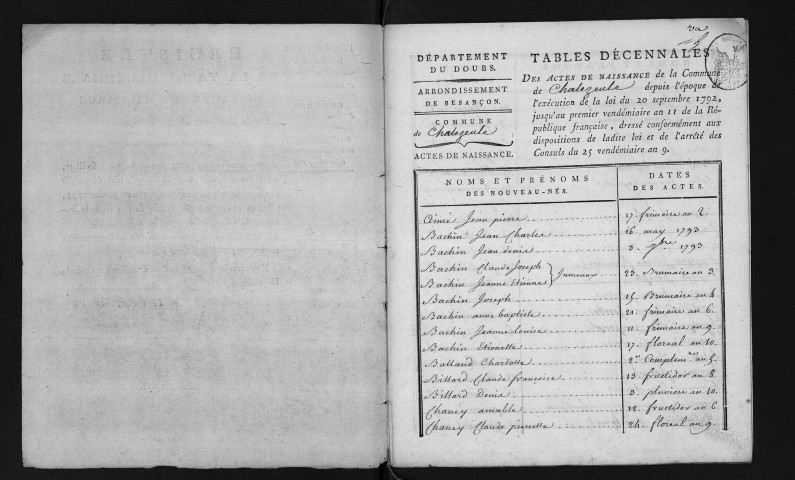 DÉPARTEMENT
DU DOUBS.
ARRONDISSEMENT
DE BESANÇON.
COMMUNE
de Chalezeule
ACTES DE NAISSANCE.
TABLES DÉCENNALES
DES ACTES DE NAISSANCE de la Commune
de Chalezeule depuis l'époque de
l'exécution de la loi du 20 septembre 1792,
jusqu'au premier vendémiaire an 11 de la Ré-
publique française, dressé conformément aux
dispositions de ladite loi et de l'arrêté des
Consuls du 25 vendémiaire an 9.
NOMS ET PRÉNOMS
DES NOUVEAU-NÉS.
DATES
DES ACTES.
Aimé Jean pierre 17. frimaire an 2.
Bachin Jean Charles 16 may 1793
Bachin Jean denis 3. 7bre 1793
Bachin Claude Joseph
Jumeaux 23. Brumaire an 3.
Bachin Jeanne Etienne
Bachin Joseph 15. Brumaire an 4.
Bachin anne baptiste 21. frimaire an 6.
Bachin Jeanne louise 11. frimaire an 9.
Bachin Etionette 17. floreal an 10.
Balland Charlotte 2e Complem.re an 5.
Billard Claude francoise 13 fructidor an 8.
Billard Denis 3. pluviose an 10.
Chaney aimable 12. fructidor an 6
Chaney Claude pierrette 24. floreal an 9.